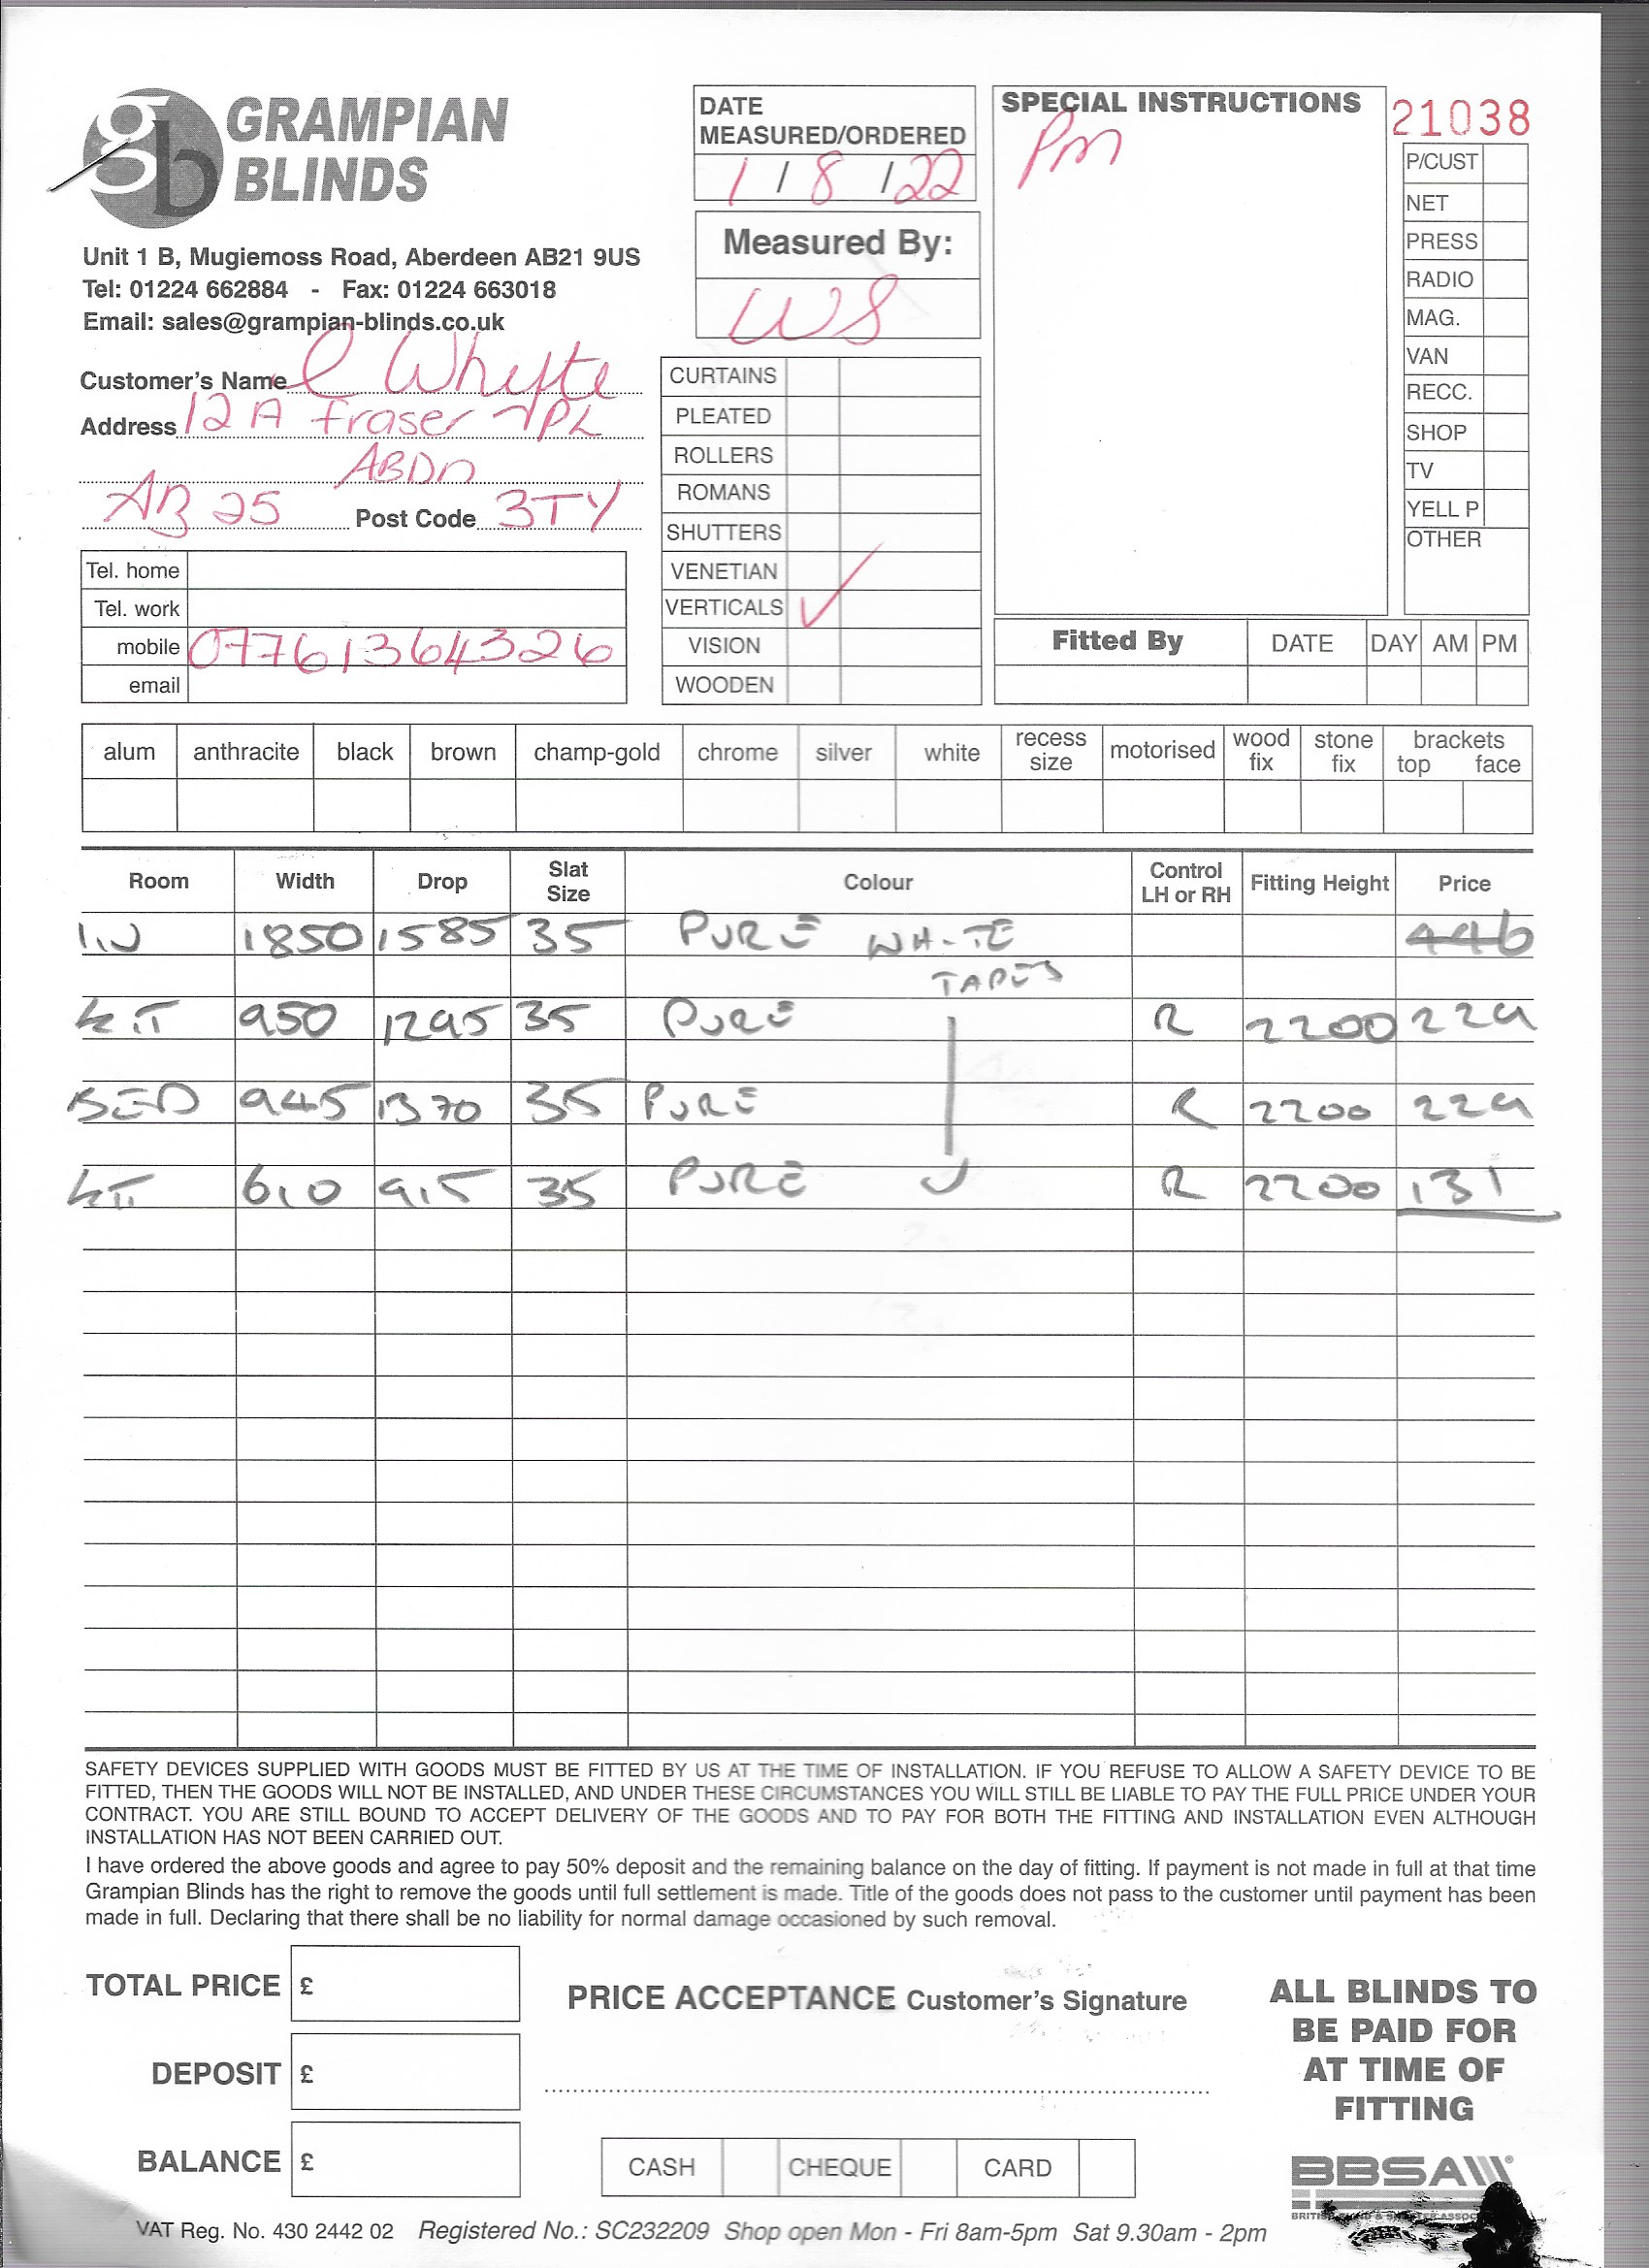 gb GRAMPIAN BLINDS
Unit 1 B, Mugiemoss Road, Aberdeen AB21 9US
Tel: 01224 662884 - Fax: 01224 663018
Email: sales@grampian-blinds.co.uk
DATE MEASURED/ORDERED
1 / 8 / 22
Measured By:
WS
SPECIAL INSTRUCTIONS
Pm
21038
P/CUST
NET
PRESS
RADIO
MAG.
VAN
RECC.
SHOP
TV
YELL P
OTHER
Customer's Name C Whyte
Address 12 A Fraser PL
ABDN
AB 25 Post Code 3TY
Tel. home
Tel. work
mobile 07761364326
email
CURTAINS
PLEATED
ROLLERS
ROMANS
SHUTTERS
VENETIAN
VERTICALS ✓
VISION
WOODEN
Fitted By DATE DAY AM PM
alum anthracite black brown champ-gold chrome silver white recess size motorised wood fix stone fix brackets top face
Room Width Drop Slat Size Colour Control LH or RH Fitting Height Price
1850 1585 35 PURE WHITE 446
TAPES
KIT 950 1295 35 PURE R 2200 229
BED 945 1370 35 PURE R 2200 229
KIT 610 915 35 PURE R 2200 131
SAFETY DEVICES SUPPLIED WITH GOODS MUST BE FITTED BY US AT THE TIME OF INSTALLATION. IF YOU REFUSE TO ALLOW A SAFETY DEVICE TO BE
FITTED, THEN THE GOODS WILL NOT BE INSTALLED, AND UNDER THESE CIRCUMSTANCES YOU WILL STILL BE LIABLE TO PAY THE FULL PRICE UNDER YOUR
CONTRACT. YOU ARE STILL BOUND TO ACCEPT DELIVERY OF THE GOODS AND TO PAY FOR BOTH THE FITTING AND INSTALLATION EVEN ALTHOUGH
INSTALLATION HAS NOT BEEN CARRIED OUT.
I have ordered the above goods and agree to pay 50% deposit and the remaining balance on the day of fitting. If payment is not made in full at that time
Grampian Blinds has the right to remove the goods until full settlement is made. Title of the goods does not pass to the customer until payment has been
made in full. Declaring that there shall be no liability for normal damage occasioned by such removal.
TOTAL PRICE £
DEPOSIT £
BALANCE £
PRICE ACCEPTANCE Customer's Signature
CASH CHEQUE CARD
ALL BLINDS TO
BE PAID FOR
AT TIME OF
FITTING
BBSA
VAT Reg. No. 430 2442 02 Registered No.: SC232209 Shop open Mon - Fri 8am-5pm Sat 9.30am - 2pm